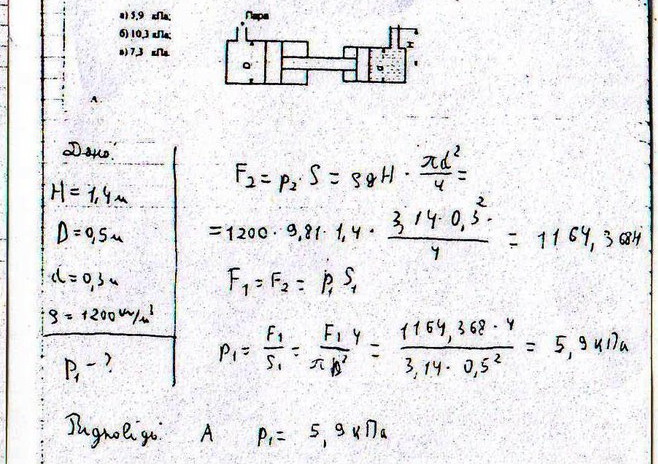 а) 5,9 кПа;
б) 10,3 кПа;
в) 7,3 кПа.
Пара
D
d
H
А.
Дано:
H = 1,4 м
D = 0,5 м
d = 0,3 м
ρ = 1200 кг/м³
P₁ - ?
F₂ = p₂ · S = ρgH · πd²/4 =
= 1200 · 9,81 · 1,4 · 3,14 · 0,3²/4 = 1164,368 Н
F₁ = F₂ = p₁ S₁
p₁ = F₁/S₁ = F₁ 4/πD² = 1164,368 · 4/3,14 · 0,5² = 5,9 кПа
Відповідь: А p₁ = 5,9 кПа